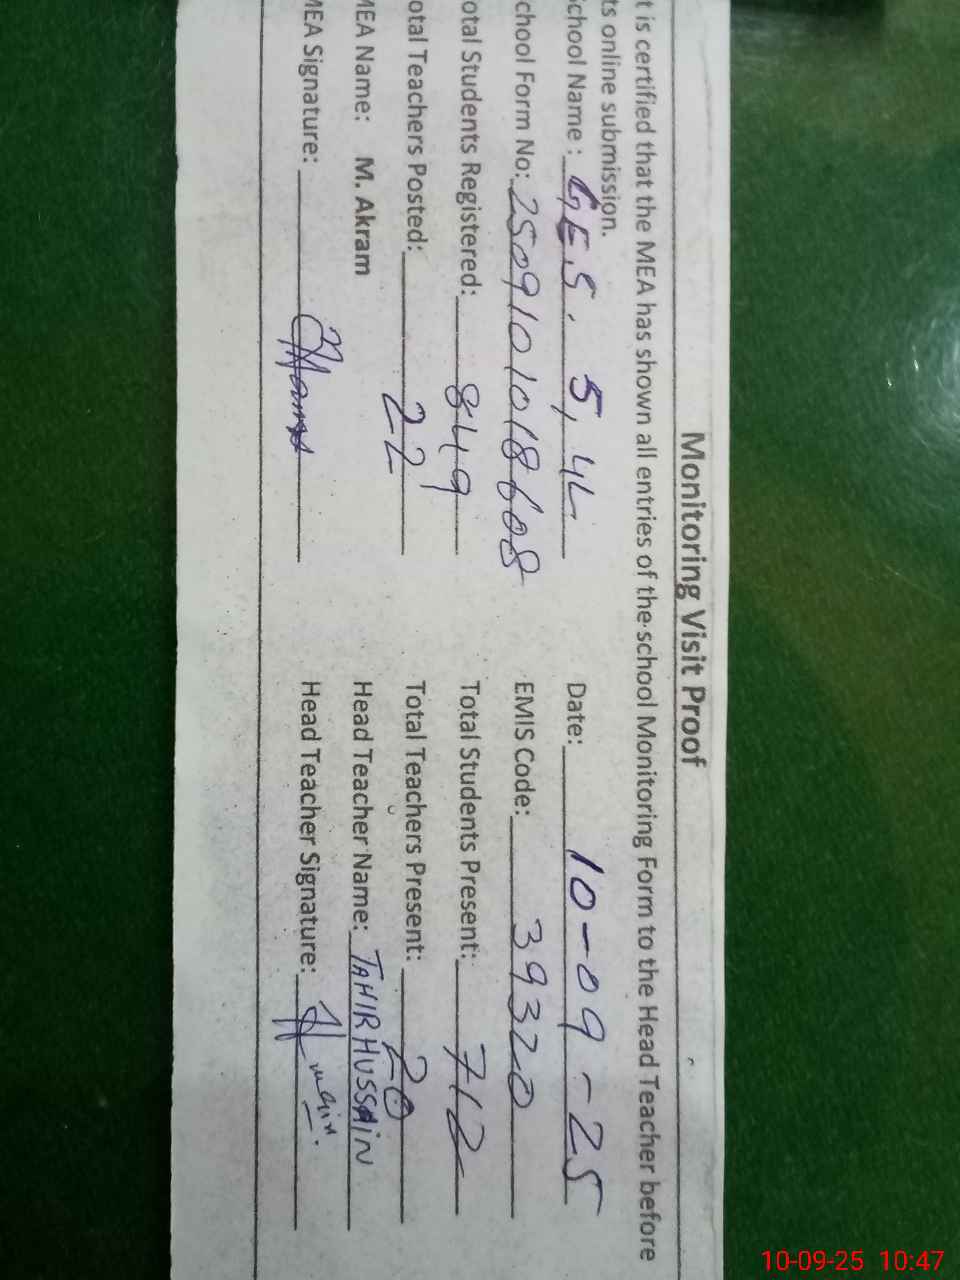 Monitoring Visit Proof
t is certified that the MEA has shown all entries of the school Monitoring Form to the Head Teacher before
ts online submission.
School Name : G.E.S. 5,4L Date: 10-09-25
chool Form No: 2509101018608 EMIS Code: 39320
otal Students Registered: 849 Total Students Present: 712
otal Teachers Posted: 22 Total Teachers Present: 20
MEA Name: M. Akram Head Teacher Name: TAHIR HUSSAIN
MEA Signature: Head Teacher Signature:
10-09-25 10:47